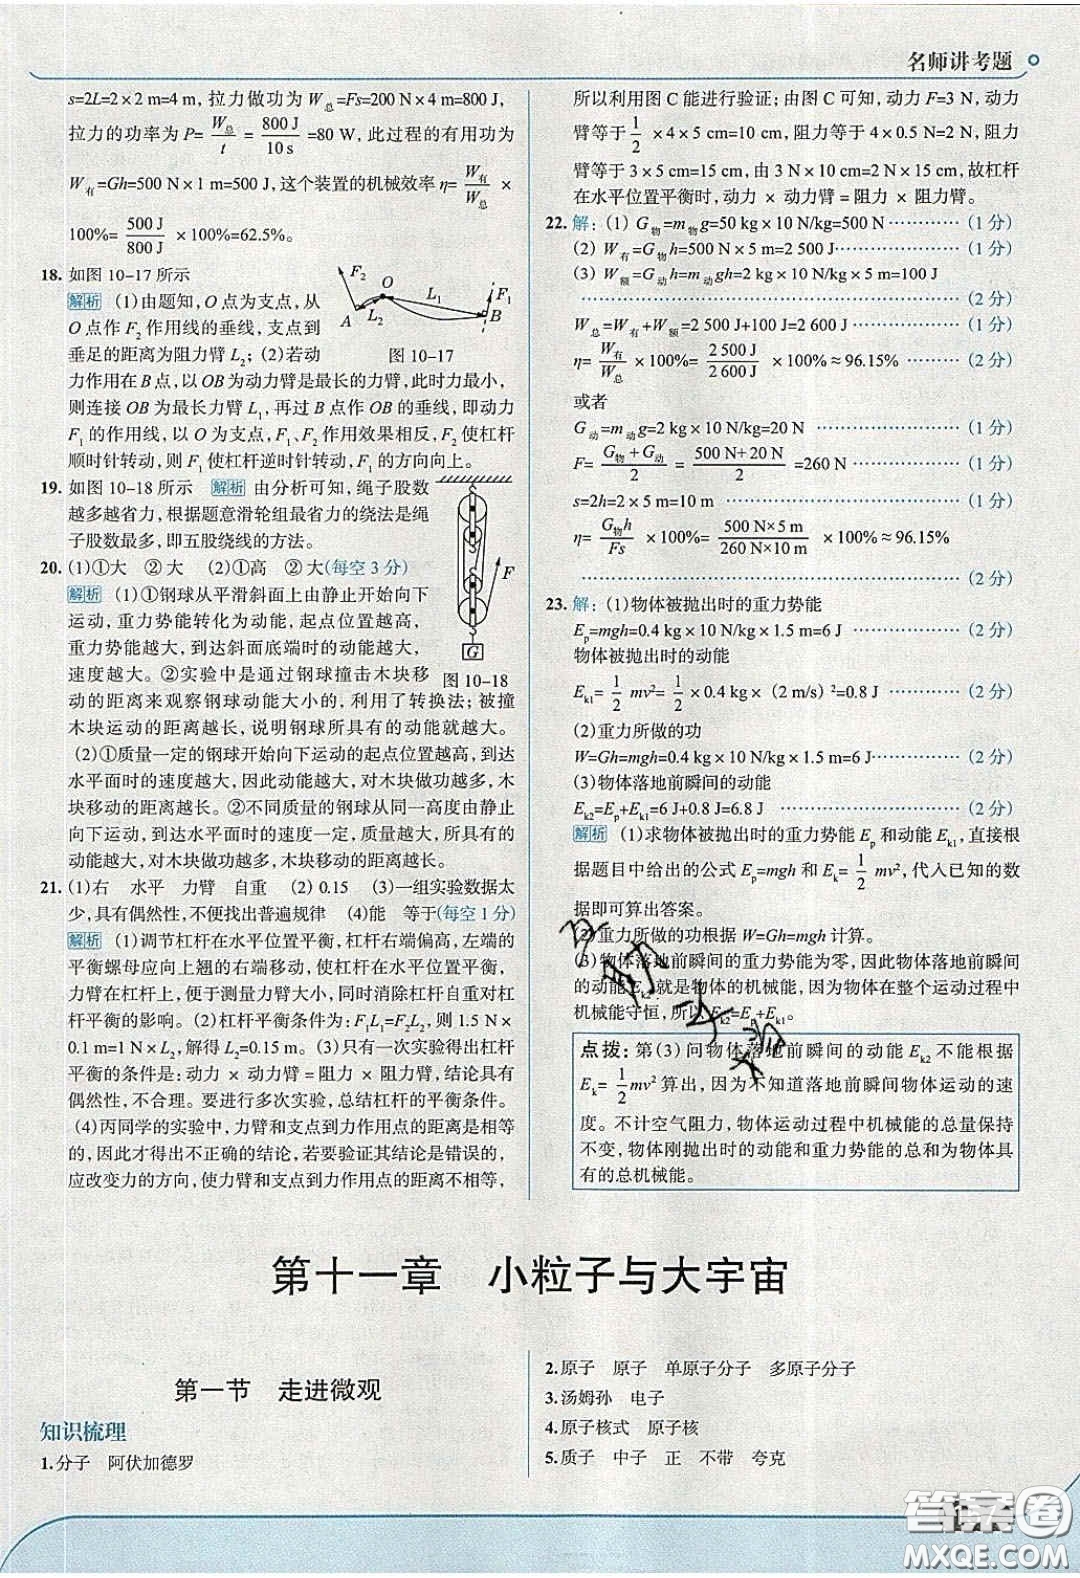 名师讲考题
s=2L=2×2 m=4 m，拉力做功为 W总=Fs=200 N×4 m=800 J，
拉力的功率为 P= W总/t = 800 J/10 s =80 W，此过程的有用功为
W有=Gh=500 N×1 m=500 J，这个装置的机械效率 η= W有/W总 ×
100%= 500 J/800 J ×100%=62.5%。
18. 如图 10-17 所示
解析 (1)由题知，O 点为支点，从
O 点作 F2 作用线的垂线，支点到
垂足的距离为阻力臂 L2；(2)若动
力作用在 B 点，以 OB 为动力臂是最长的力臂，此时力最小，
则连接 OB 为最长力臂 L1，再过 B 点作 OB 的垂线，即动力
F1 的作用线，以 O 为支点，F1、F2 作用效果相反，F2 使杠杆
顺时针转动，则 F1 使杠杆逆时针转动，F1 的方向向上。
F2
O
L1
F1
A
L2
B
图 10-17
19. 如图 10-18 所示 解析 由分析可知，绳子股数
越多越省力，根据题意滑轮组最省力的绕法是绳
子股数最多，即五股绕线的方法。
20. (1)①大 ②大 (2)①高 ②大(每空 3 分)
解析 (1)①钢球从平滑斜面上由静止开始向下
运动，重力势能转化为动能，起点位置越高，
重力势能越大，到达斜面底端时的动能越大，
速度越大。②实验中是通过钢球撞击木块移
动的距离来观察钢球动能大小的，利用了转换法；被撞
木块运动的距离越长，说明钢球所具有的动能就越大。
F
G
图 10-18
(2)①质量一定的钢球开始向下运动的起点位置越高，到达
水平面时的速度越大，因此动能越大，对木块做功越多，木
块移动的距离越长。②不同质量的钢球从同一高度由静止
向下运动，到达水平面时的速度一定，质量越大，所具有的
动能越大，对木块做功越多，木块移动的距离越长。
21. (1)右 水平 力臂 自重 (2) 0.15 (3)一组实验数据太
少，具有偶然性，不便找出普遍规律 (4)能 等于(每空 1 分)
解析 (1)调节杠杆在水平位置平衡，杠杆右端偏高，左端的
平衡螺母应向上翘的右端移动，使杠杆在水平位置平衡，
力臂在杠杆上，便于测量力臂大小，同时消除杠杆自重对杠
杆平衡的影响。(2)杠杆平衡条件为：F1L1=F2L2，则 1.5 N×
0.1 m=1 N×L2，解得 L2=0.15 m。(3)只有一次实验得出杠杆
平衡的条件是：动力×动力臂=阻力×阻力臂，结论具有
偶然性，不合理。要进行多次实验，总结杠杆的平衡条件。
(4)丙同学的实验中，力臂和支点到力作用点的距离是相等
的，因此才得出不正确的结论，若要验证其结论是错误的，
应改变力的方向，使力臂和支点到力作用点的距离不相等，
所以利用图 C 能进行验证；由图 C 可知，动力 F=3 N，动力
臂等于 1/2 ×4×5 cm=10 cm，阻力等于 4×0.5 N=2 N，阻力
臂等于 3×5 cm=15 cm，由 3 N×10 cm=2 N×15 cm，故杠杆
在水平位置平衡时，动力×动力臂=阻力×阻力臂。
22. 解：(1) G物=m物g=50 kg×10 N/kg=500 N …………(1 分)
(2) W有=G物h=500 N×5 m=2 500 J………………(1 分)
(3) W额=G动h=m动gh=2 kg×10 N/kg×5 m=100 J
………………………………………………(2 分)
W总=W有+W额=2 500 J+100 J=2 600 J …………(1 分)
η= W有/W总 ×100%= 2 500 J/2 600 J ×100%≈96.15% ………(2 分)
或者
G动=m动g=2 kg×10 N/kg=20 N ………………(1 分)
F= G物+G动/2 = 500 N+20 N/2 =260 N ………………(1 分)
s=2h=2×5 m=10 m ……………………………(1 分)
η= G物h/Fs ×100%= 500 N×5 m/260 N×10 m ×100%≈96.15%
………………………………………………(2 分)
23. 解：(1)物体被抛出时的重力势能
Ep=mgh=0.4 kg×10 N/kg×1.5 m=6 J ……………(2 分)
物体被抛出时的动能
Ek1= 1/2 mv²= 1/2 ×0.4 kg×(2 m/s)²=0.8 J …………(2 分)
(2)重力所做的功
W=Gh=mgh=0.4 kg×10 N/kg×1.5 m=6 J……………(2 分)
(3)物体落地前瞬间的动能
Ek2=Ep+Ek1=6 J+0.8 J=6.8 J ……………………(2 分)
解析 (1)求物体被抛出时的重力势能 Ep 和动能 Ek1，直接根
据题目中给出的公式 Ep=mgh 和 Ek= 1/2 mv²，代入已知的数
据即可算出答案。
(2)重力所做的功根据 W=Gh=mgh 计算。
(3)物体落地前瞬间的重力势能为零，因此物体落地前瞬间
的动能 Ek2 就是物体的机械能，因为物体在整个运动过程中
机械能守恒，所以 Ek2=Ep+Ek1。
点拨：第(3)问物体落地前瞬间的动能 Ek2 不能根据
Ek= 1/2 mv² 算出，因为不知道落地前瞬间物体运动的速
度。不计空气阻力，物体运动过程中机械能的总量保持
不变，物体刚抛出时的动能和重力势能的总和为物体具
有的总机械能。
第十一章 小粒子与大宇宙
第一节 走进微观
知识梳理
1.分子 阿伏加德罗
2.原子 原子 单原子分子 多原子分子
3.汤姆孙 电子
4.原子核式 原子核
5.质子 中子 正 不带 夸克
答案圈
MXQE.COM